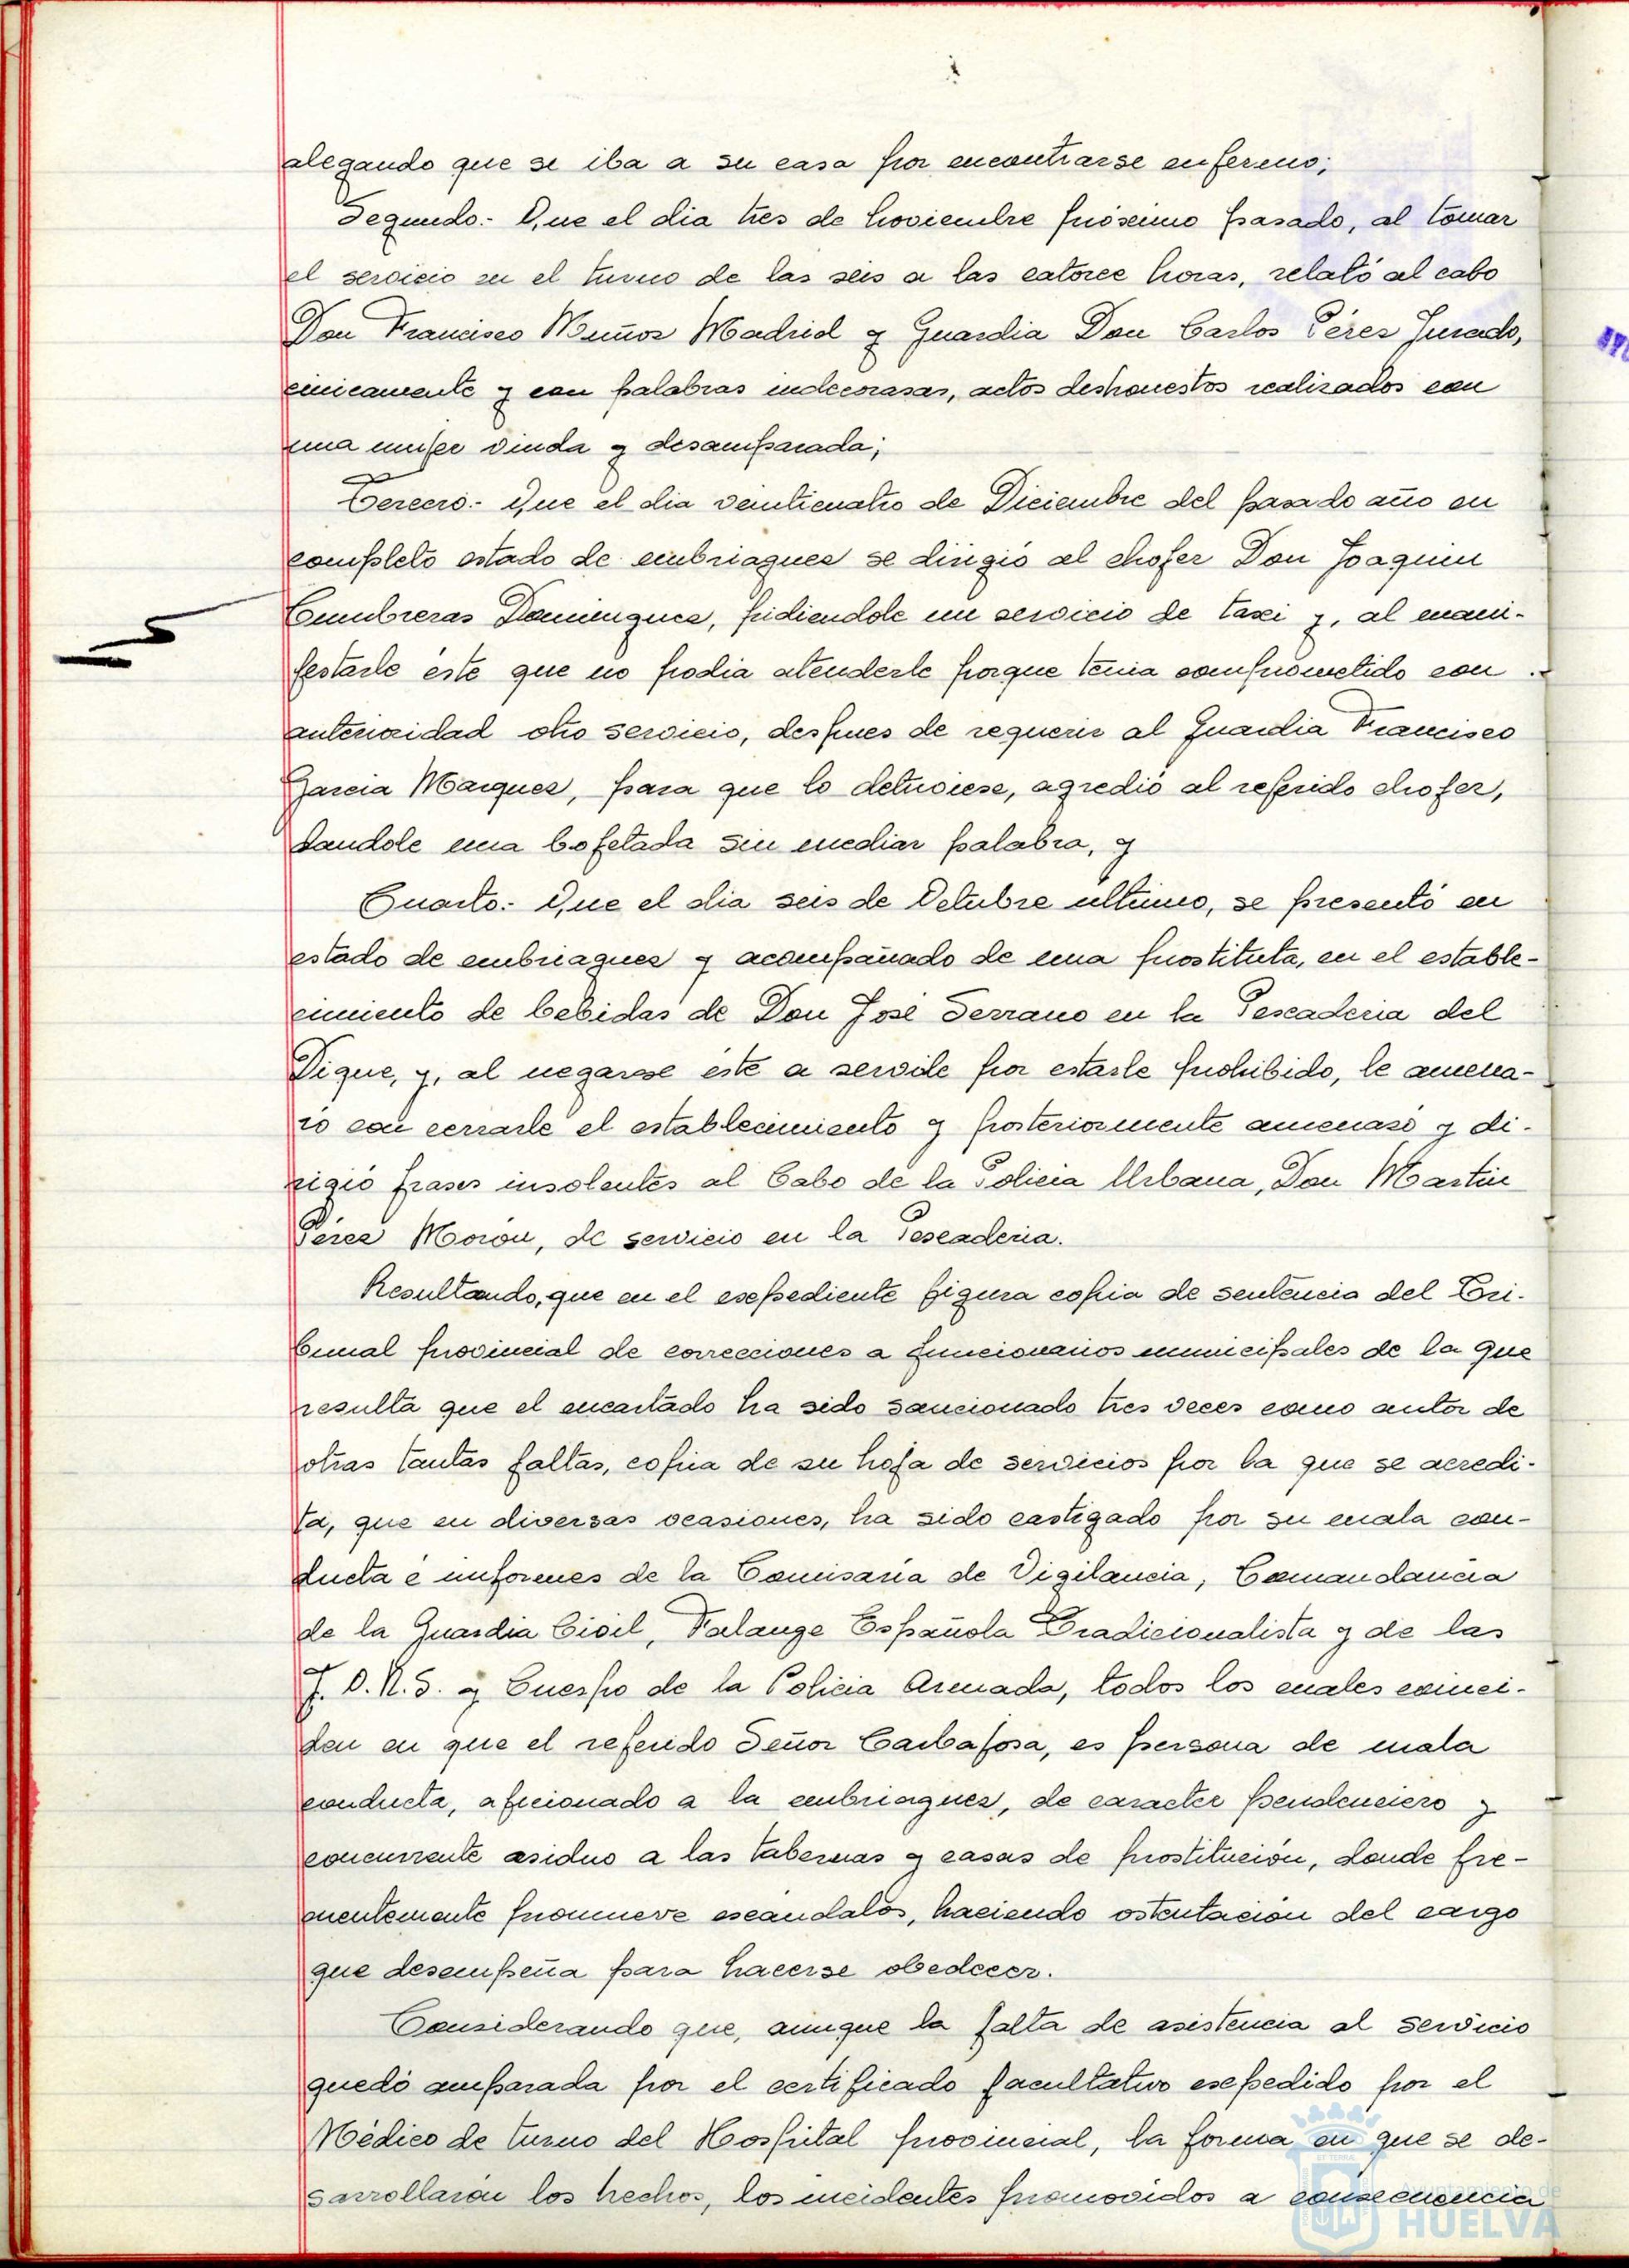 alegando que se iba a su casa por encontrarse enfermo;
Segundo:- Que el dia tres de Noviembre próximo pasado, al tomar
el servicio en el turno de las seis a las catorce horas, relató al cabo
Don Francisco Muñoz Madrid y Guardia Don Carlos Pérez Jurado,
cinicamente y con palabras indecorasas, actos deshonestos realizados con
una mujer viuda y desamparada;
Tercero:- Que el dia veinticuatro de Diciembre del pasado año en
completo estado de embriaguez se dirigió al chofer Don Joaquin
Cumbreras Dominguez, pidiendole un servicio de taxi y, al mani-
festarle éste que no podia atenderle porque tenia comprometido con
anterioridad otro servicio, despues de requerir al Guardia Francisco
Garcia Marquez, para que lo detuviese, agredió al referido chofer,
dandole una bofetada sin mediar palabra, y
Cuarto:- Que el dia seis de Octubre ultimo, se presentó en
estado de embriaguez y acompañado de una prostituta, en el estable-
cimiento de bebidas de Don José Serrano en la Pescaderia del
Dique, y, al negarse éste a servile por estarle prohibido, le amena-
zó con cerrarle el establecimiento y posteriormente amenazó y di-
rigió frases insolentes al Cabo de la Policia Urbana, Don Martin
Pérez Morón, de servicio en la Pescaderia.
Resultando, que en el expediente figura copia de sentencia del Tri-
bunal provincial de correcciones a funcionarios municipales de la que
resulta que el encartado ha sido sancionado tres veces como autor de
otras tantas faltas, copia de su hoja de servicios por la que se acredi-
ta, que en diversas ocasiones, ha sido castigado por su mala con-
ducta é informes de la Comisaría de Vigilancia, Comandancia
de la Guardia Civil, Falange Española Tradicionalista y de las
J.O.N.S. y Cuerpo de la Policia Armada, todos los cuales coinci-
den en que el referido Señor Carbajosa, es persona de mala
conducta, aficionado a la embriaguez, de caracter pendenciero y
concurrente asiduo a las tabernas y casas de prostitución, donde fre-
cuentemente promueve escándalos, haciendo ostentación del cargo
que desempeña para hacerse obedecer.
Considerando que, aunque la falta de asistencia al servicio
quedó amparada por el certificado facultativo expedido por el
Médico de turno del Hospital provincial, la forma en que se de-
sarrollaron los hechos, los incidentes promovidos a consecuencia
Ayuntamiento de
HUELVA